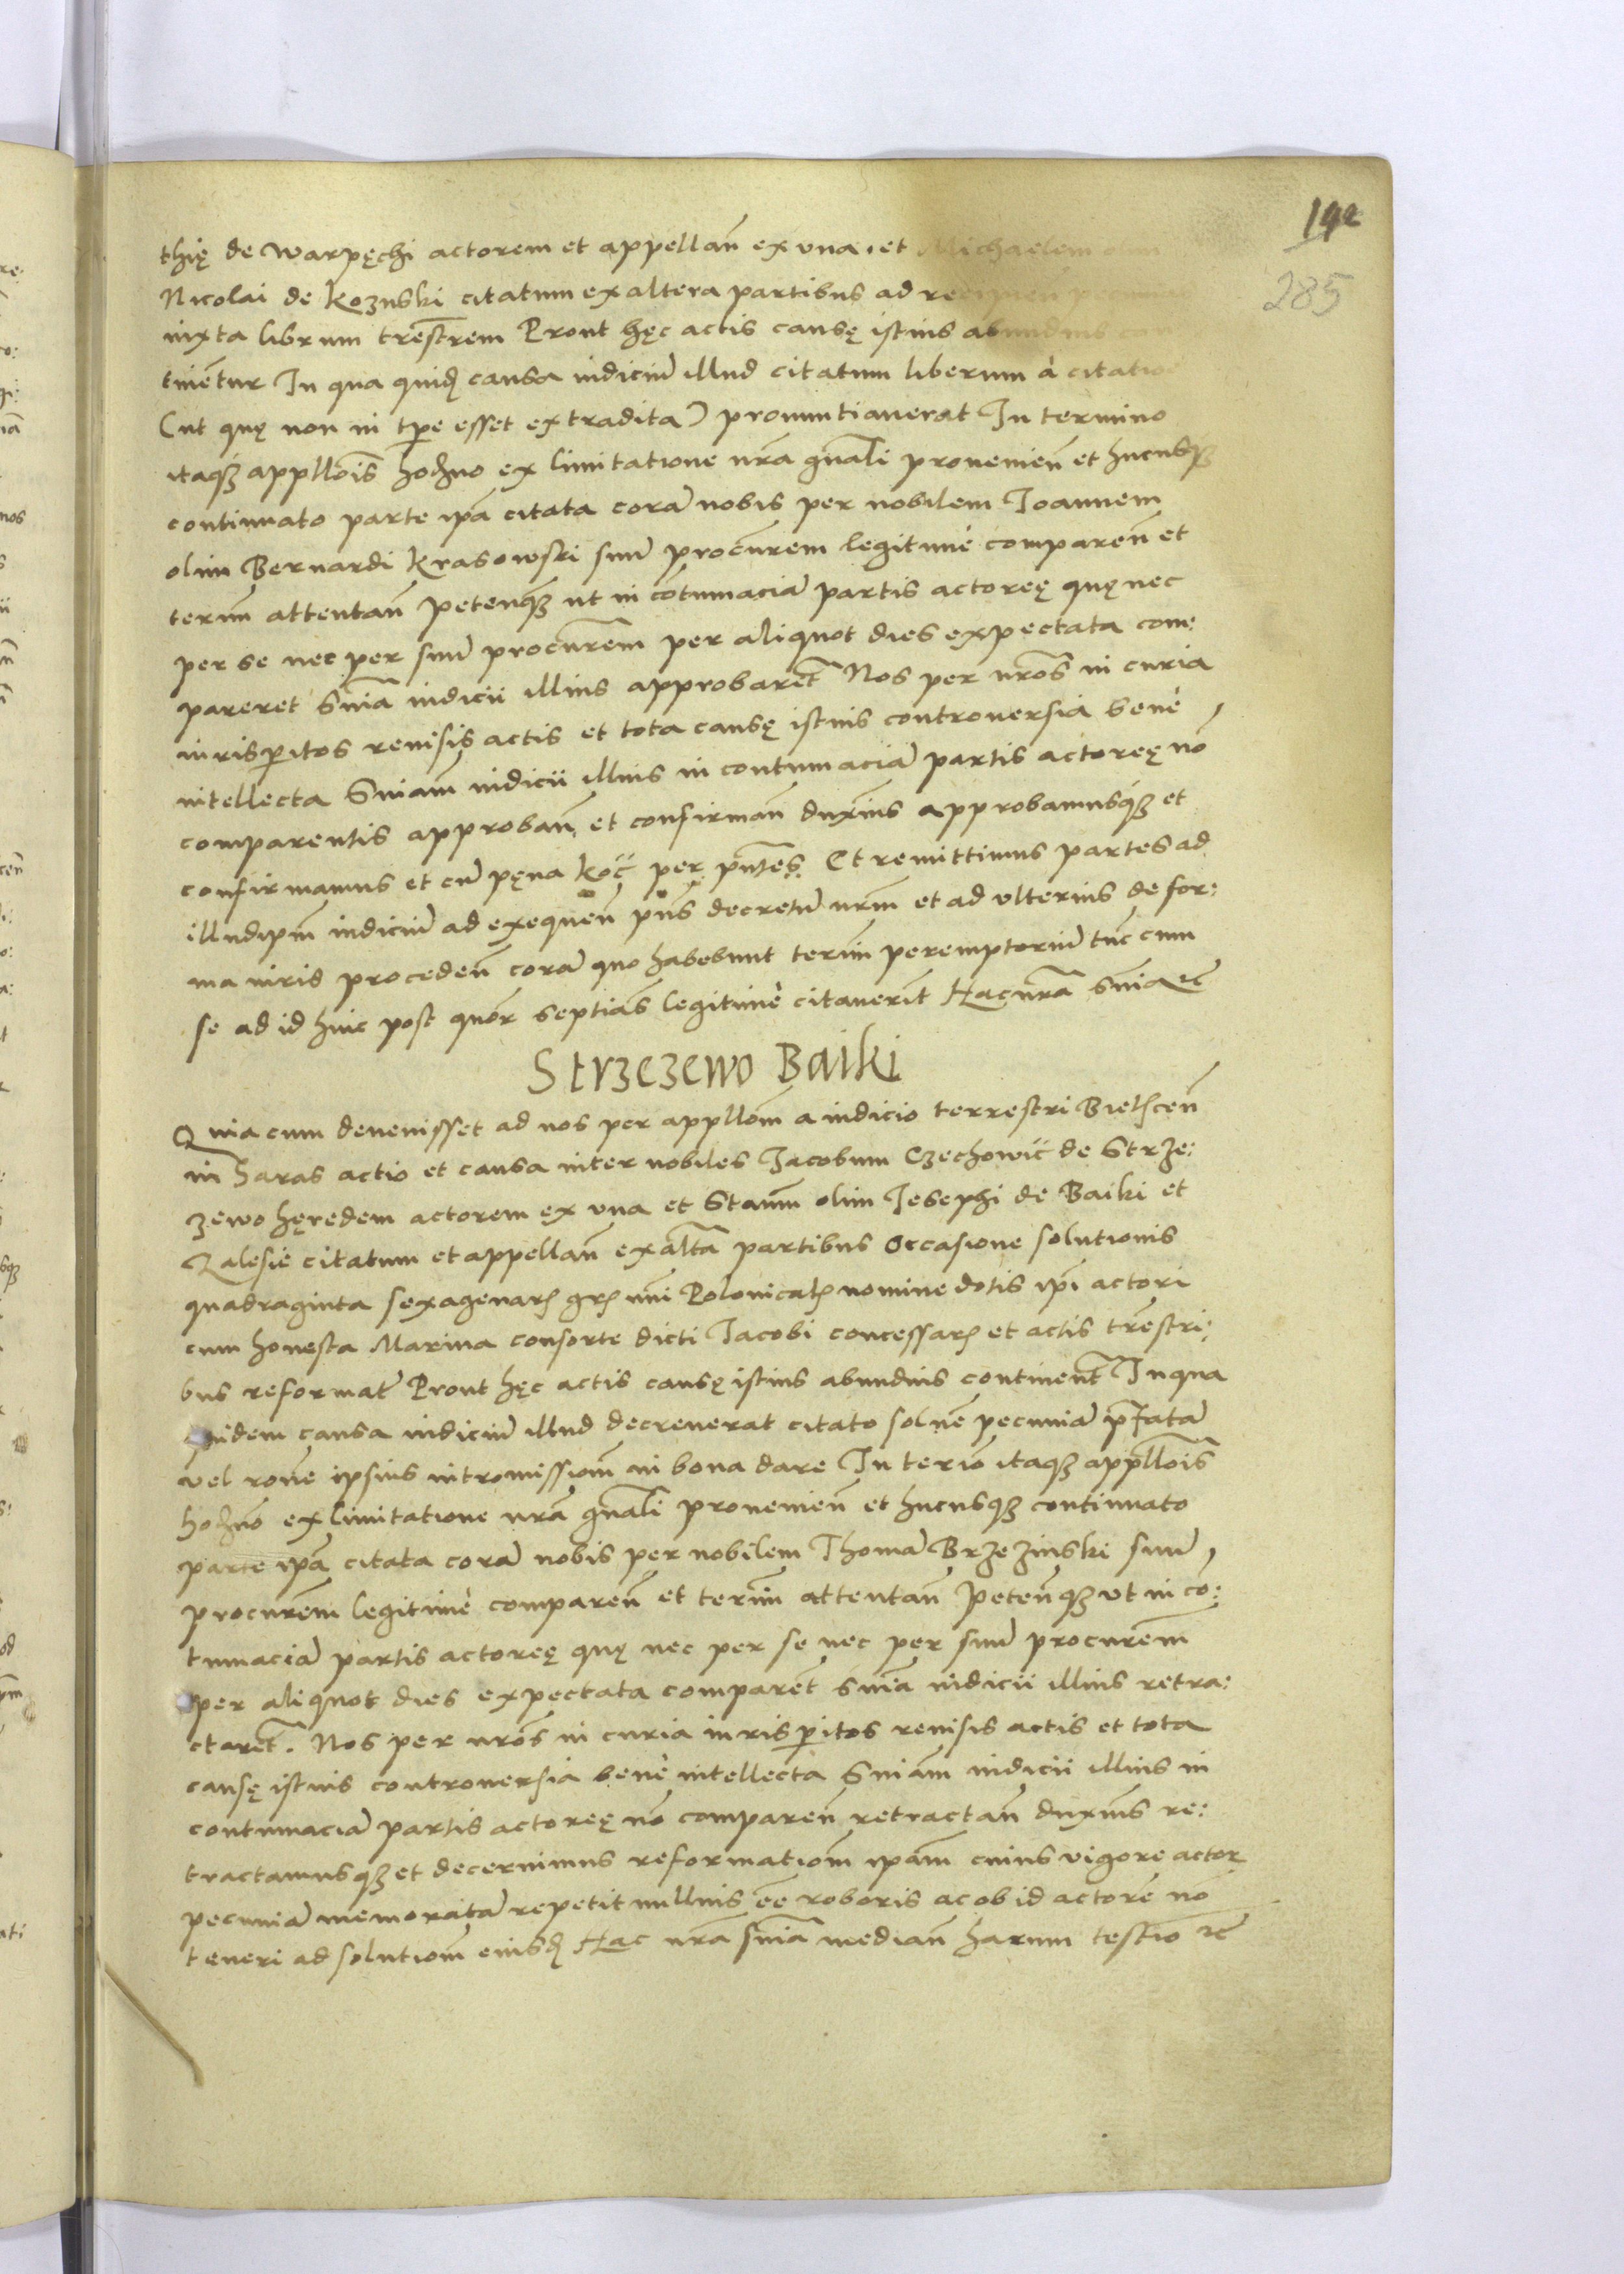 192
285
thię de Warpęchi actorem et appellan̄ ex vna, et Michaelem
Nicolai de Kozuski citatum ex altera partibus ad
iuxta librum tr̄estrem Prout hęc actis causę istius abundius con
tinētur In qua quid̨ causa iudiciū illud citatum liberum à citatioē
(ut quę non in tp̄e esset extradita) pronuntiauerat In termino
itaq₃ appll̄ois hod̨no ex limitatione nr̄a gn̄ali prouenien̄ et hucusq₃
continuato parte ip̄a citata corā nobis per nobilem Joannem
olim Bernardi Krasowski suū procūrem legitimè comparen̄ et
termī attentan̄ petenq₃ ut in cōtumaciā partis actoreę quę nec
per se nec per suū procūrem per aliquot dies expectata com:
pareret Sn̄ia iudicii illius approbaret̄ Nos per nr̄os in curia
iurisp̄itos reuisis actis et tota causę istius controuersia benè
intellecta Sn̄iam iudicii illius in contumaciā partis actoreę nō
comparentis approban̄ et confirman̄ duxim̄s approbamusq₃ et
confirmamus et cū pęna Koc̄ per pn̄tes. Et remittimus partes ad
illud ip̄m iudiciū ad exequen̄ pn̄s decretū nr̄m et ad vlterius de for:
ma iuris proceden̄ corā quo habebunt termī peremptoriū tūc cum
se ad id hinc post quōr septiās legitimè citauerīt Hac nr̄a sn̄ia &c
Strzezewo Baiki
Quia cum deuenisset ad nos per appllōm a iudicio terrestri Bielscen̄
in Haras actio et causa inter nobiles Jacobum Czechowic̄ de Strze:
zewo hęredem actorem ex vna et Stanm̄ olim Josephi de Baiki et
Zalesie citatum et appellan̄ ex altā partibus Occasione solutionis
quadraginta sexagenar̨ gr̨ nn̄i Polonical̨ nomine dotis ip̄i actori
cum honesta Marina consorte dicti Jacobi concessar̨ et actis tr̄estri:
bus reformat̄ Prout hęc actis causę istius abundius continent̄ In qua
quidem causa iudiciū illud decreuerat citato soluē pecuniā pr̄fatā
vel rōne ipsius intromissiom̄ in bona dare In terīo itaq₃ appll̄ois
hod̨no ex limitatione nr̄a gn̄ali prouenien̄ et hucusq₃ continuato
parte ip̄a citata corā nobis per nobilem Thomā Brzezinski suū
procūrem legitimè comparen̄ et termī attentan̄ Petenq₃ vt in cō:
tumaciā partis actoreę quę nec per se nec per suū procurēm
per aliquot dies expectata comparēt sn̄ia iudicii illius retra:
ctaret̄. Nos per nr̄os in curia iurisp̄itos reuisis actis et tota
causę istius controuersia benè intellecta Sn̄iam iudicii illius in
contumaciā partis actoreę nō comparen̄ retractan̄ duxim̄s re:
tractamusq₃ et decernimus reformatiom̄ ip̄am cuius vigore actor
pecuniā memoratā repetit nullius ēe roboris ac ob id actorē nō
teneri ad solutiom̄ eiusd̨ Hac nr̄a sn̄ia median̄ harum testīo &c